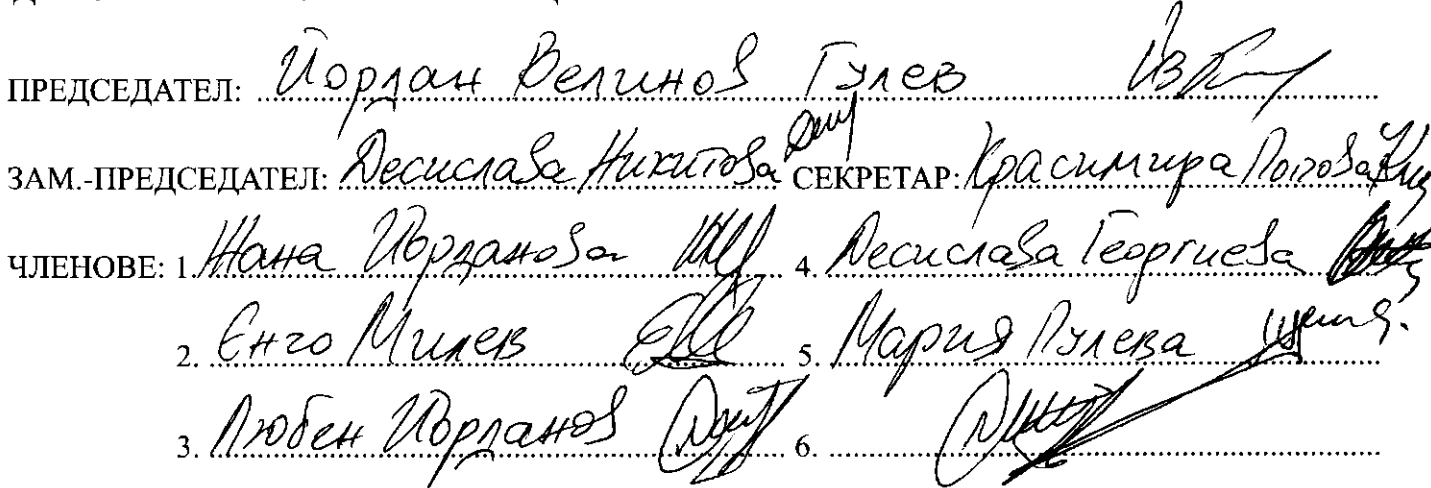 ПРЕДСЕДАТЕЛ: Йордан Велинов Гулев
ЗАМ.-ПРЕДСЕДАТЕЛ: Десислава Никитова СЕКРЕТАР: Красимира Попова
ЧЛЕНОВЕ: 1. Жана Йорданова 4. Десислава Георгиева
2. Енчо Милев 5. Мария Гулева
3. Любен Йорданов 6.